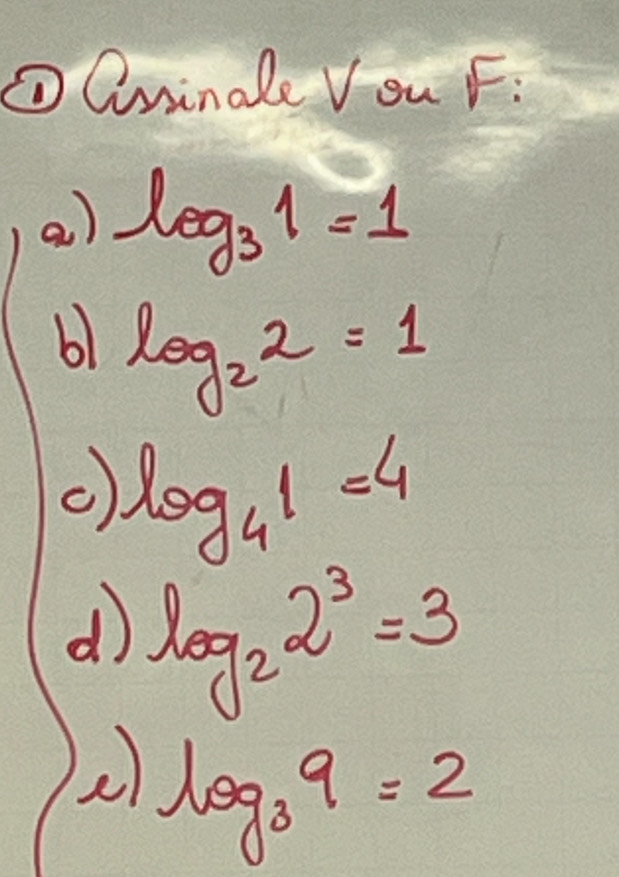 ① Assinale V ou F:
a) log₃ 1 = 1
b) log₂ 2 = 1
c) log₄ 1 = 4
d) log₂ 2³ = 3
e) log₃ 9 = 2